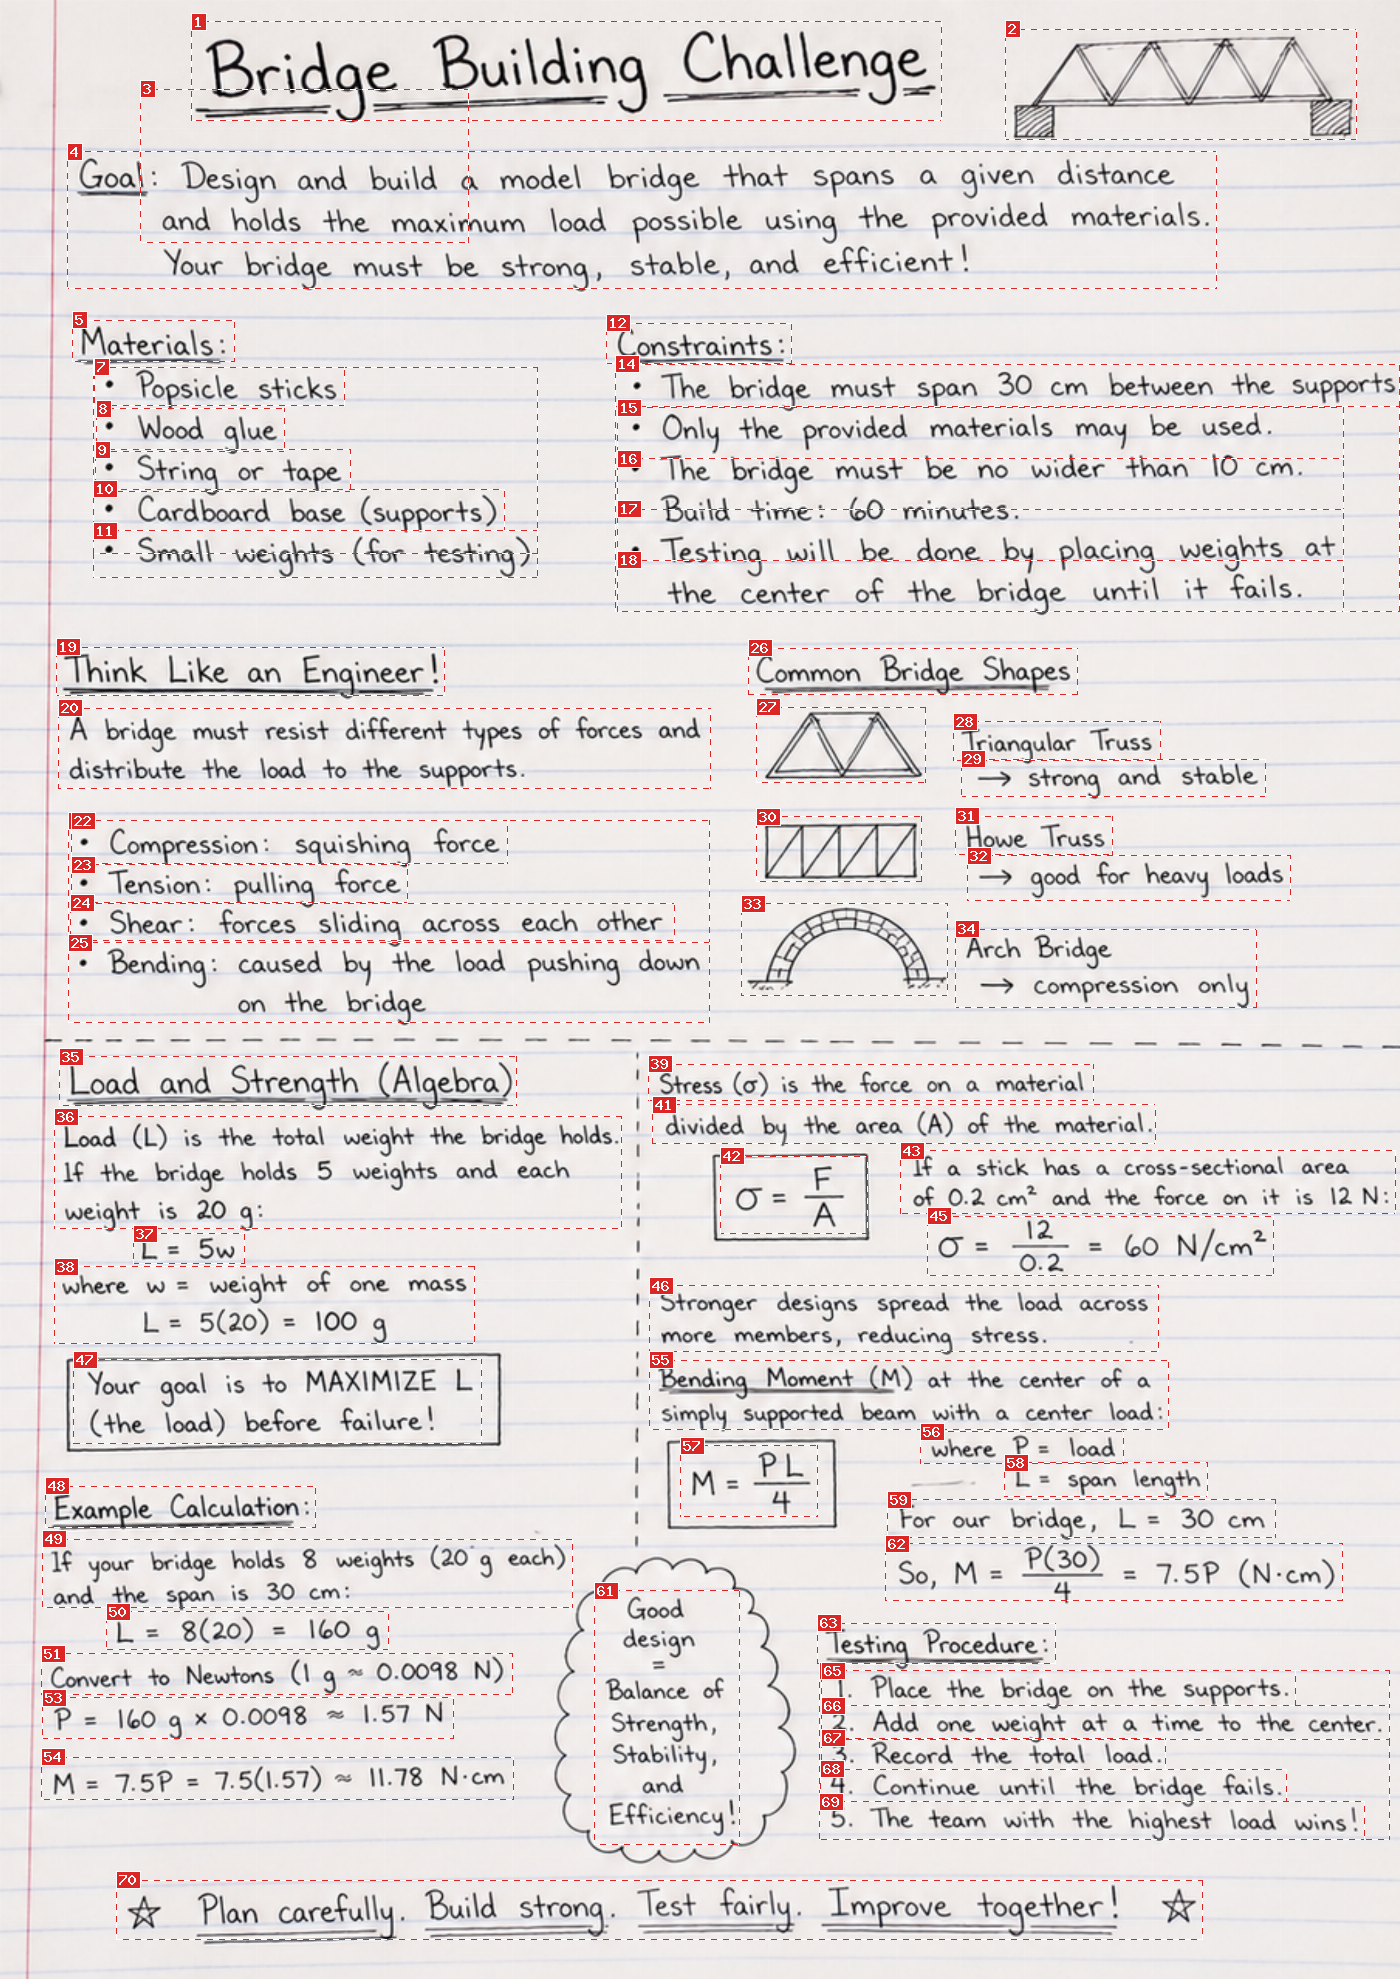 Bridge Building Challenge
Goal: Design and build a model bridge that spans a given distance
and holds the maximum load possible using the provided materials.
Your bridge must be strong, stable, and efficient!
Materials:
• Popsicle sticks
• Wood glue
• String or tape
• Cardboard base (supports)
• Small weights (for testing)
Constraints:
• The bridge must span 30 cm between the supports
• Only the provided materials may be used.
• The bridge must be no wider than 10 cm.
• Build time: 60 minutes.
• Testing will be done by placing weights at
the center of the bridge until it fails.
Think Like an Engineer!
A bridge must resist different types of forces and
distribute the load to the supports.
• Compression: squishing force
• Tension: pulling force
• Shear: forces sliding across each other
• Bending: caused by the load pushing down
on the bridge
Common Bridge Shapes
Triangular Truss
→ strong and stable
Howe Truss
→ good for heavy loads
Arch Bridge
→ compression only
Load and Strength (Algebra)
Load (L) is the total weight the bridge holds.
If the bridge holds 5 weights and each
weight is 20 g:
L = 5w
where w = weight of one mass
L = 5(20) = 100 g
Your goal is to MAXIMIZE L
(the load) before failure!
Example Calculation:
If your bridge holds 8 weights (20 g each)
and the span is 30 cm:
L = 8(20) = 160 g
Convert to Newtons (1 g ≈ 0.0098 N)
P = 160 g × 0.0098 ≈ 1.57 N
M = 7.5P = 7.5(1.57) ≈ 11.78 N·cm
Stress (σ) is the force on a material
divided by the area (A) of the material.
σ = F/A
If a stick has a cross-sectional area
of 0.2 cm² and the force on it is 12 N:
σ = 12/0.2 = 60 N/cm²
Stronger designs spread the load across
more members, reducing stress.
Bending Moment (M) at the center of a
simply supported beam with a center load:
M = PL/4
where P = load
L = span length
For our bridge, L = 30 cm
So, M = P(30)/4 = 7.5P (N·cm)
Good
design
=
Balance of
Strength,
Stability,
and
Efficiency!
Testing Procedure:
1. Place the bridge on the supports.
2. Add one weight at a time to the center.
3. Record the total load.
4. Continue until the bridge fails.
5. The team with the highest load wins!
☆ Plan carefully. Build strong. Test fairly. Improve together! ☆